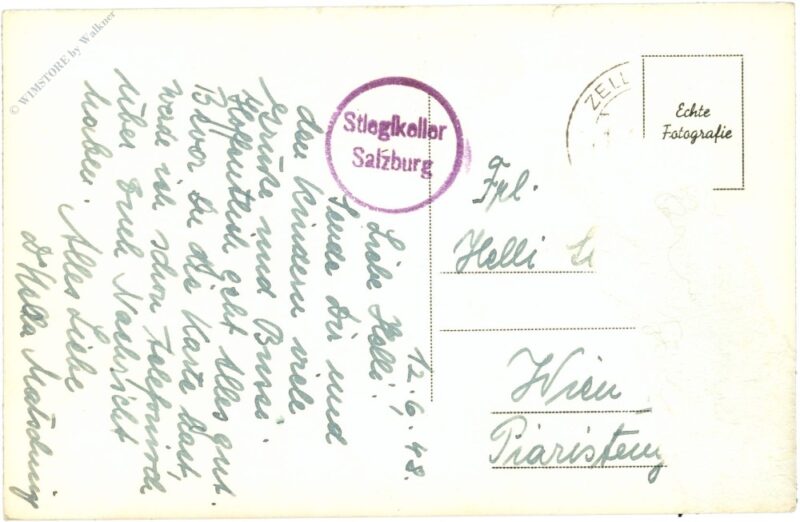 © W1MSTORE by Walkner
12.6.48.
Liebe Helli!
Sende Dir und
den Kindern viele
Grüße und Bussi.
Hoffentlich geht Alles gut.
Bevor Du die Karte hast,
werde ich schon telefonisch
über Euch Nachricht
haben. Alles Liebe
Stieglkeller
Salzburg
ZELL
Echte
Fotografie
Frl.
Helli
Wien
Piaristeng